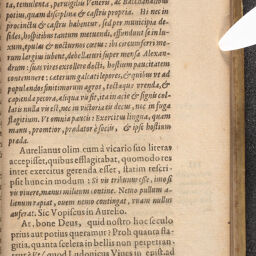 ta, temulenta, peruigiliu Veneri, ac Bacchanaliou
potius, quam disciplina & castris propria. Hi nec in
procinctu & castris habentur, sed per municipia de-
sides, hospitibus tantum metuendi, effundunt se in lu-
xum, epulas & nocturnos cœtus: hos circumferri me-
rum largius iubent, debellaturi super mensa Alexan-
drum: suas vires extollere docti, hostium paucitatem
contemnere: cæterum galeati lepores, & quibus vt ad
populandos finitimorum agros, tostaque vrenda, &
capienda pecora, aliqua vis sit, ita in acie & signis col-
latis nulla vis est, nec in victoria vi decus, nec in fuga
flagitium. Vt omnia paucis: Exercitus lingua, quam
manu, promtior, prædator è sociis, & ipse hostium
præda.
Aurelianus olim cum à vicario suo literas
accepisset, quibus efflagitabat, quomodo res
inter exercitus gerenda esset, statim rescri-
psit hunc in modum: Si vis tribunus esse, imo si
vis viuere, manus militum contine. Nemo pullum a-
lienum rapiat, ouem nemo contingat, vuam nullus
auferat. Sic Vopiscus in Aurelio.
At, bone Deus, quid nostro hoc seculo
prius aut potius queramur? Proh quanta fla-
gitia, quanta scelera in bellis non perpetran-
quod Ludouicus Viues in epist. ad